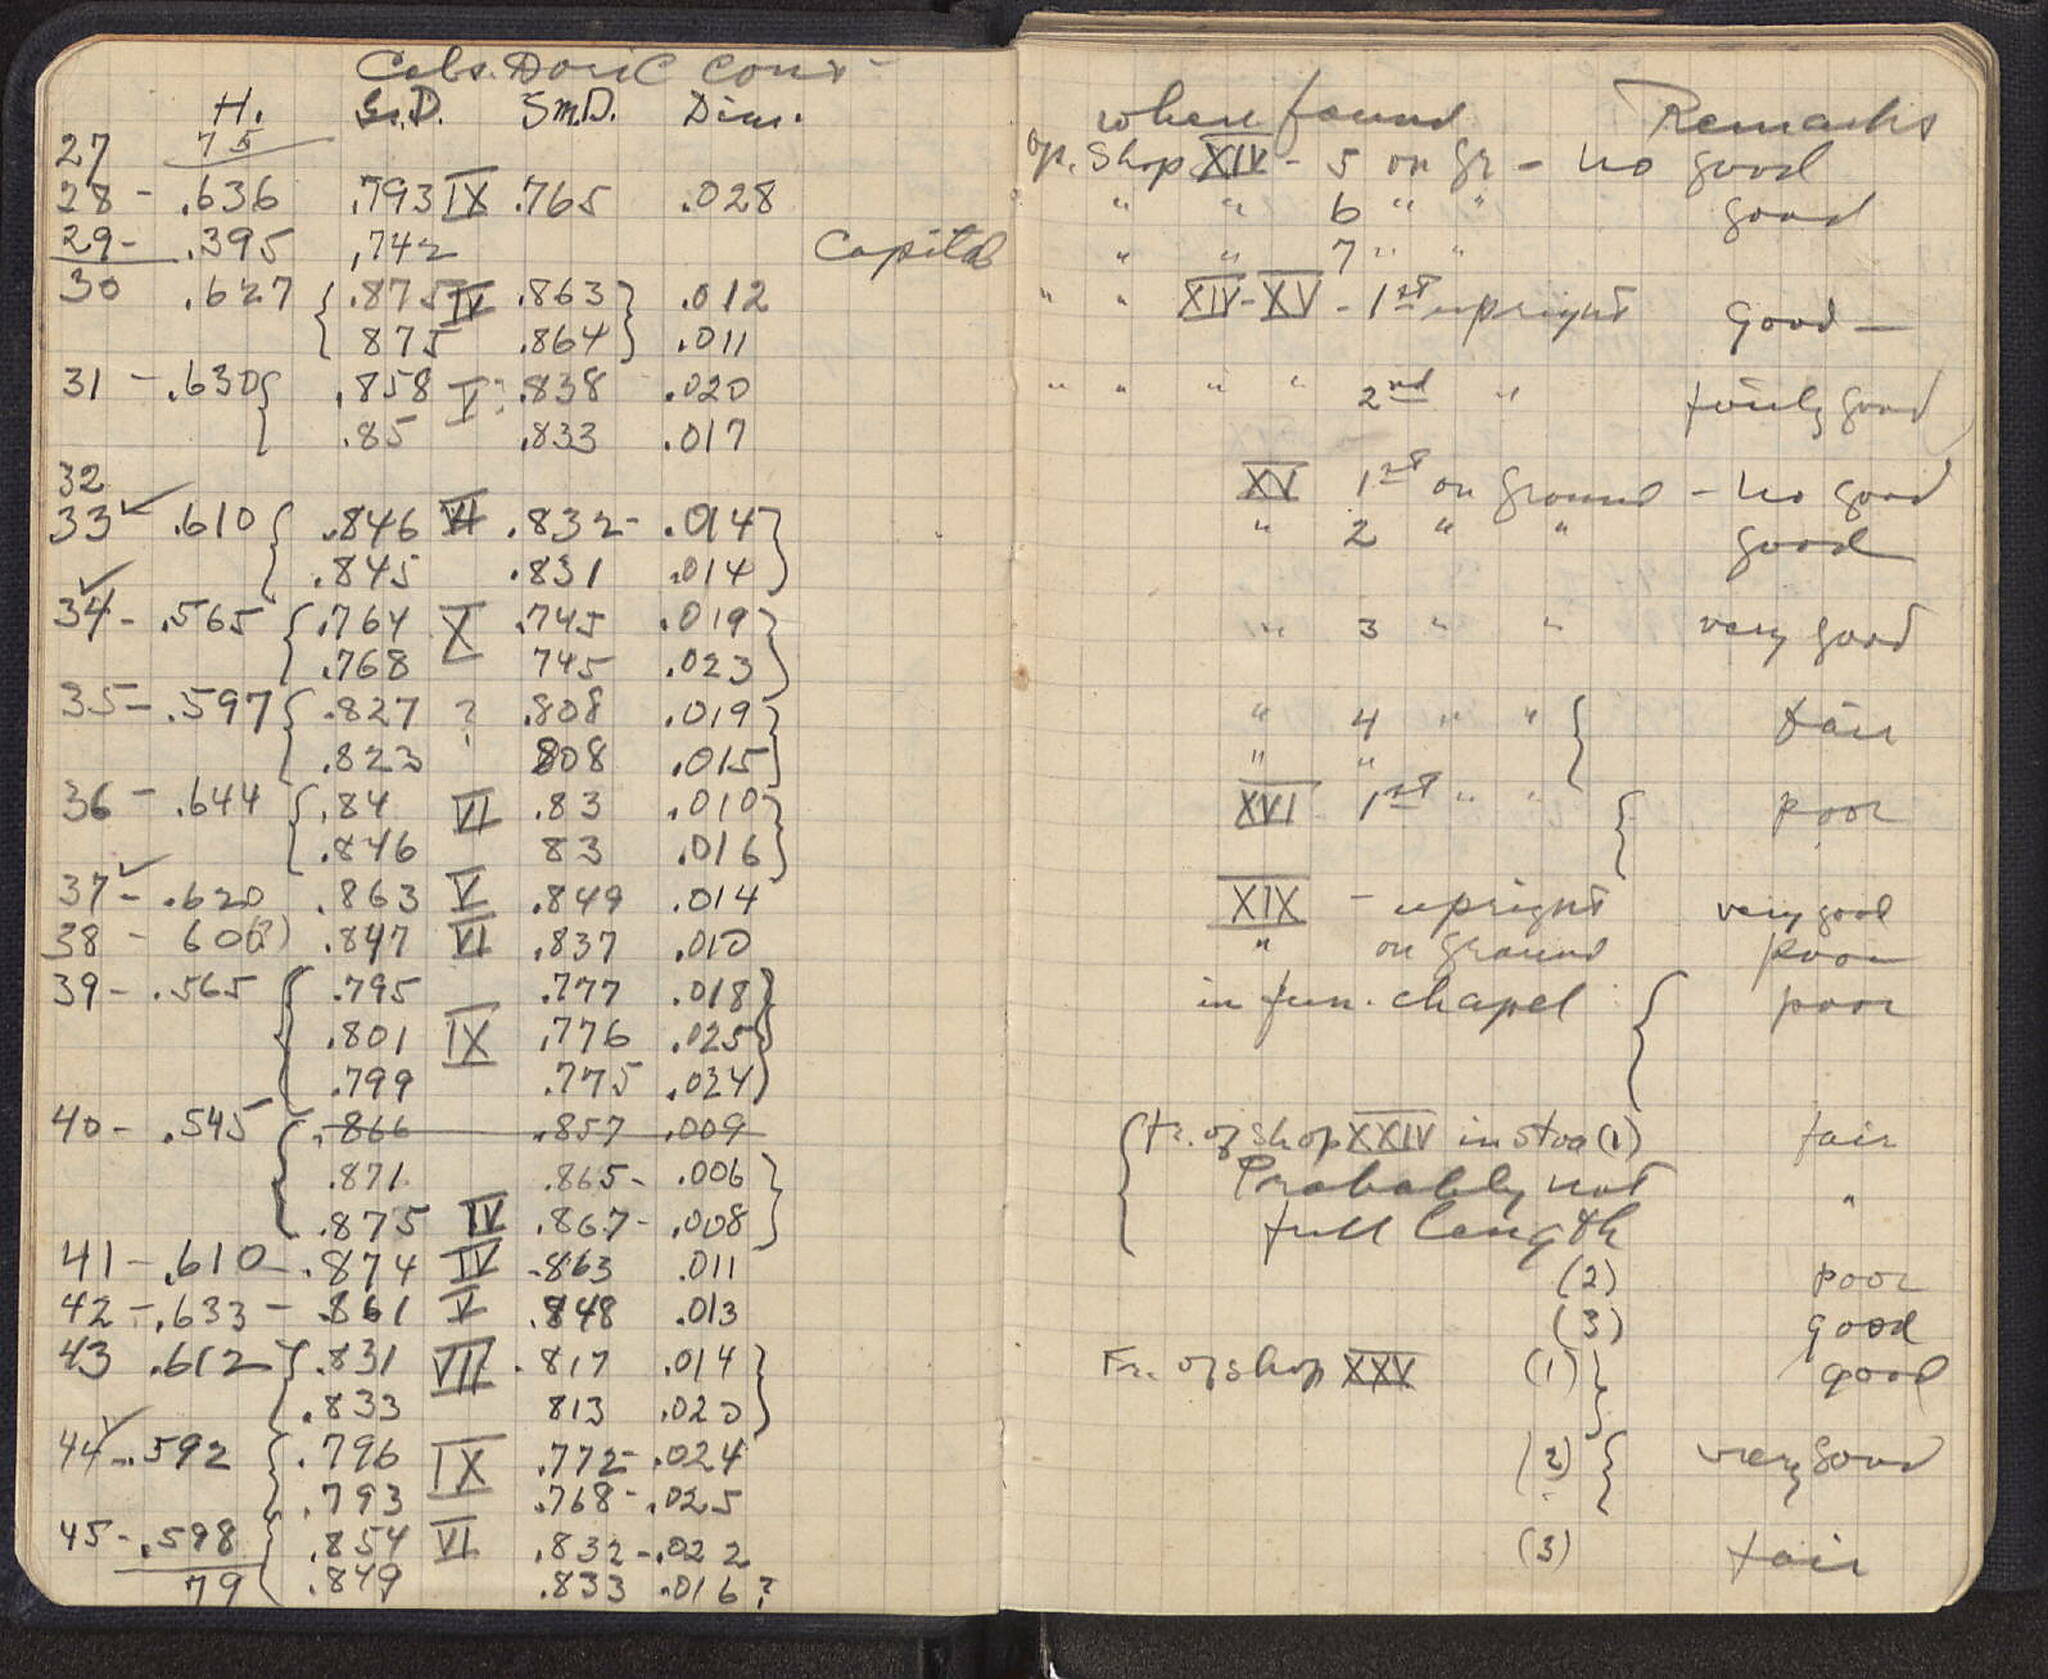 Cols. Doric Cont-
H. Gr.D. Sm.D. Dim.
27 75
28 - .636 .793 IX .765 .028
29 - .395 .742 Capital
30 .627 .875 IV .863 .012
875 .864 .011
31 - .630 .858 V? .838 .020
.85 .833 .017
32
33 ✓ .610 .846 VI .832 - .014
.845 .831 .014
34 ✓ - .565 .764 X .745 .019
.768 745 .023
35 - .597 .827 ? .808 .019
.823 808 .015
36 - .644 .84 VI .83 .010
.846 83 .016
37 ✓ - .620 .863 V .849 .014
38 - 60(?) .847 VI .837 .010
39 - .565 .795 .777 .018
.801 IX .776 .025
.799 .775 .024
40 - .545 .866 .857 .009
.871 .865 - .006
.875 IV .867 - .008
41 - .610 - .874 IV .863 .011
42 - .633 - .861 V .848 .013
43 .612 .831 VII .817 .014
.833 813 .020
44 ✓ - .592 .796 IX .772 - .024
.793 .768 - .025
45 - .598 .854 VI .832 - .022
79 .849 .833 .016 ?
where found Remarks
op. Shop XIV - 5 on gr - no good
" " 6 " " good
" " 7 " "
" " XIV-XV - 1st upright good -
" " " " 2nd " fairly good
XV 1st on ground - no good
" 2 " " good
" 3 " " very good
" 4 " " fair
" "
XVI 1st " " poor
XIX - upright very good
" on ground poor
in fun. chapel poor
Fr. of shop XXIV in stoa (1) fair
Probably not "
full length
(2) poor
(3) good
Fr. of shop XXV (1) good
(2) very good
(3) fair